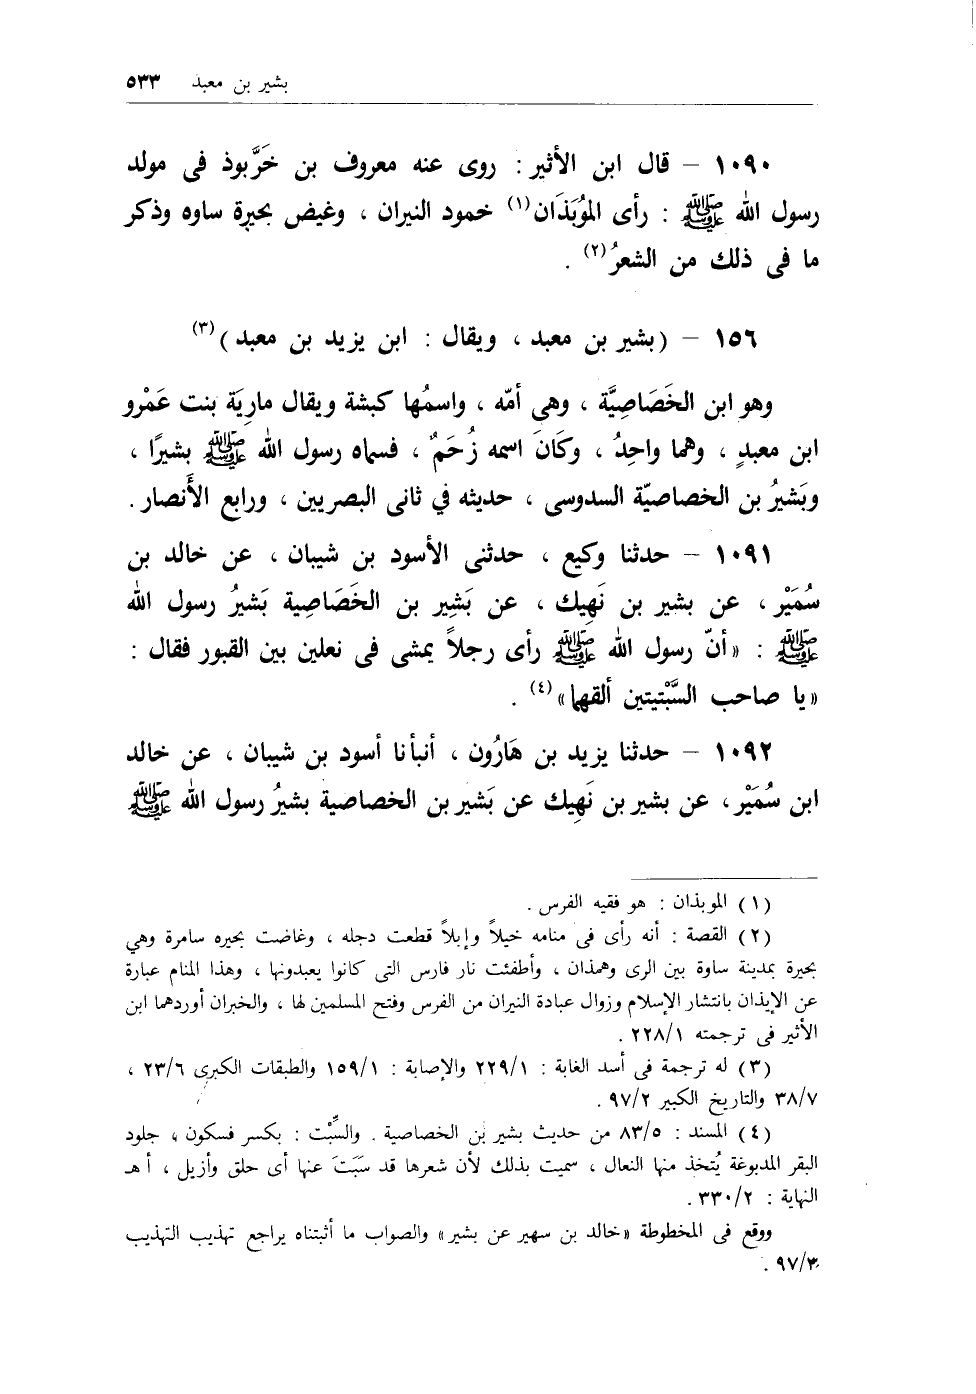 بشير بن معبد ٥٣٣
١٠٩٠ – قال ابن الأثير : روى عنه معروف بن خَرَّبوذ فى مولد
رسول الله ﷺ : رأى المُوْبَذَان(١) خمود النيران ، وغيض بحيرة ساوه وذكر
ما فى ذلك من الشعرُ(٢) .
١٥٦ – (بشير بن معبد ، ويقال : ابن يزيد بن معبد)(٣)
وهو ابن الخَصَاصِيَّة ، وهى أمّه ، واسمُها كبشة ويقال مارِيَة بنت عَمْرو
ابن معبدٍ ، وهما واحِدُ ، وكَانَ اسمه زُحَمٌ ، فسماه رسول الله ﷺ بشيرًا ،
وبَشيرُ بن الخصاصيّة السدوسى ، حديثه في ثانى البصريين ، ورابع الأَنصار .
١٠٩١ – حدثنا وكيع ، حدثنى الأسود بن شيبان ، عن خالد بن
سُمَيْر ، عن بشير بن نَهِيك ، عن بَشِير بن الخَصَاصِية بَشيرُ رسول الله
ﷺ : «أنّ رسول الله ﷺ رأى رجلاً يمشى فى نعلين بين القبور فقال :
«يا صاحب السَّبْتيتين ألقهما»(٤) .
١٠٩٢ – حدثنا يزيد بن هَارُون ، أنبأنا أسود بن شيبان ، عن خالد
ابن سُمَيْر ، عن بشير بن نَهِيك عن بَشير بن الخصاصية بشيرُ رسول الله ﷺ
(١) الموبذان : هو فقيه الفرس .
(٢) القصة : أنه رأى فى منامه خيلاً وإبلاً قطعت دجله ، وغاضت بحيره سامرة وهي
بحيرة بمدينة ساوة بين الرى وهمذان ، وأطفئت نار فارس التى كانوا يعبدونها ، وهذا المنام عبارة
عن الإيذان بانتشار الإسلام وزوال عبادة النيران من الفرس وفتح المسلمين لها ، والخبران أوردهما ابن
الأثير فى ترجمته ٢٢٨/١ .
(٣) له ترجمة فى أسد الغابة : ٢٢٩/١ والإصابة : ١٥٩/١ والطبقات الكبرى ٢٣/٦ ،
٣٨/٧ والتاريخ الكبير ٩٧/٢ .
(٤) المسند : ٨٣/٥ من حديث بشير بن الخصاصية . والسِّبْت : بكسر فسكون ، جلود
البقر المدبوغة يُتخذ منها النعال ، سميت بذلك لأن شعرها قد سَبَتَ عنها أى حلق وأزيل ، أ هـ
النهاية : ٣٣٠/٢ .
ووقع فى المخطوطة «خالد بن سهير عن بشير» والصواب ما أثبتناه يراجع تهذيب التهذيب
٩٧/٣ .